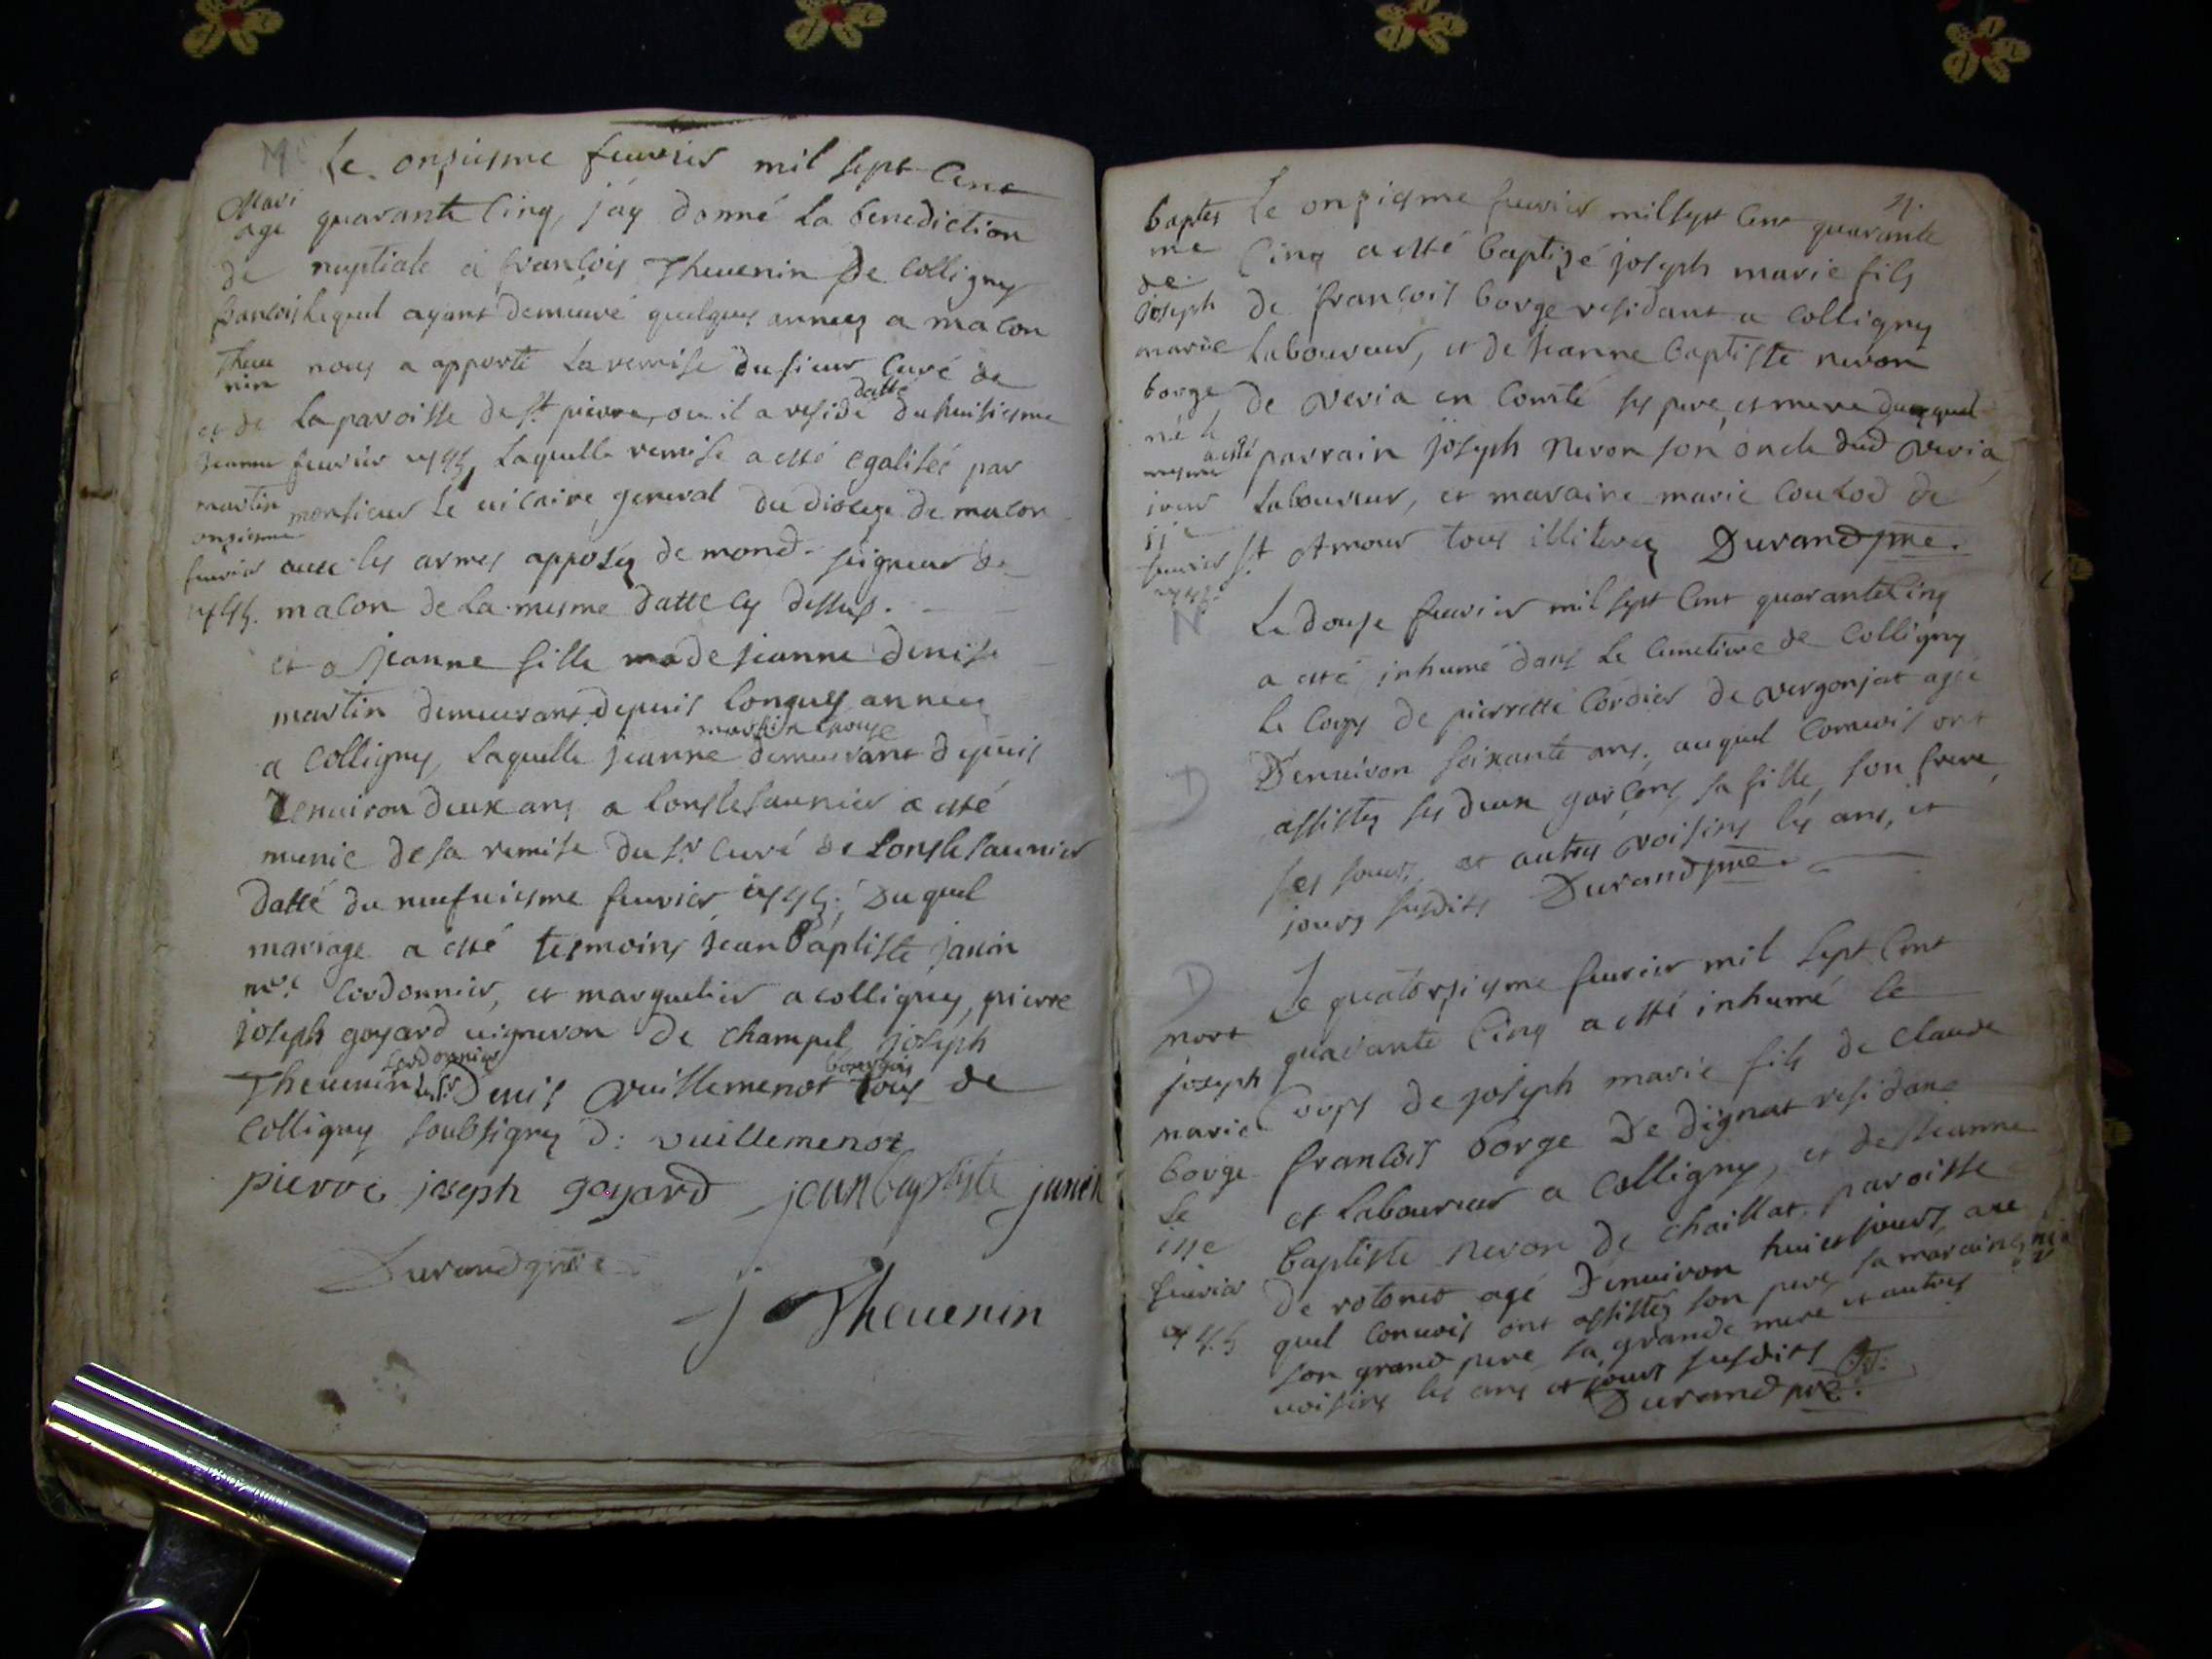 Le onziesme feuvrier mil sept Cent
Mari
age
quarante Cinq, j'ay donné La benediction
de nuptiale a françois Theuenin De Colligny
francois Lequel ayant demeuré quelques années a macon
Theue
nin
nous a apporté La remise du sieur Curé de
datté
et de La paroisse de St. pierre, ou il a residé du huitiesme
Jeanne feuvrier 1745, Laquelle remise a esté egalisée par
martin monsieur Le vicaire general du diocese de macon
onziesme
feuvrier avec les armes apposées de mond. seigneur de
1745. macon de La mesme datte cy dessus.
et a Jeanne fille de Jeanne denise
martin demeurant depuis Longues années
martin
a Colligny, Laquelle Jeanne demeurant depuis
d'enuiron deux ans a LonsleSaunier a esté
munie de sa remise du Sr. Curé de LonsleSaunier
datté du neufuiesme feuvrier 1745; Duquel
mariage a esté tesmoins Jean Baptiste janin
mre. Cordonnier, et marguelier a Colligny, pierre
joseph goyard uigneron de Champel, joseph
cordonnier
bourgois
Theuenin, Le Sr. Denis Vuillemenot tous de
Colligny soubsignez D: vuillemenot
pierre joseph goyard jean baptiste janin
Durand ptre
j Theuenin
21.
baptes
me
de
joseph
marie
borge
né le
mesme
jour
11e
feuvrier
1745
Le onziesme feuvrier mil sept Cent quarante
Cinq a esté baptizé joseph marie fils
de francois borge residant a Colligny
Laboureur, et de Jeanne baptiste neron
de Veria en Comté ses pere, et mere duquel
a esté parrain joseph Neron son oncle dud Veria
Laboureur, et maraine marie Coulod de
St Amour tous illiterez Durand ptre.
N
Le douze feuvrier mil sept Cent quarante Cinq
a esté inhumé dans Le Cimetiere de Colligny
Le Corps de pierrette Cordier de Vergonjat agée
D'enuiron soixante ans. auquel Conuois ont
assistez ses deux garçons, sa fille, son frere,
ses sœurs, et autres voisins les ans, et
jours susdits Durand ptre.
D
D
mort
joseph
marie
borge
Le
14e
feuvrier
1745
Le quatorziesme feuvrier mil sept Cent
quarante Cinq a esté inhumé le
Corps de joseph marie fils de Claude
francois borge De Dignat residant
et Laboureur a Colligny, et de Jeanne
baptiste Neron de Chaillat paroisse
de rotonod agé D'enuiron huict jours, au
quel Conuois ont assistez son pere, sa maraine,
son grand pere, sa grande mere et autres
voisins les ans et jours susdits
Durand ptre.